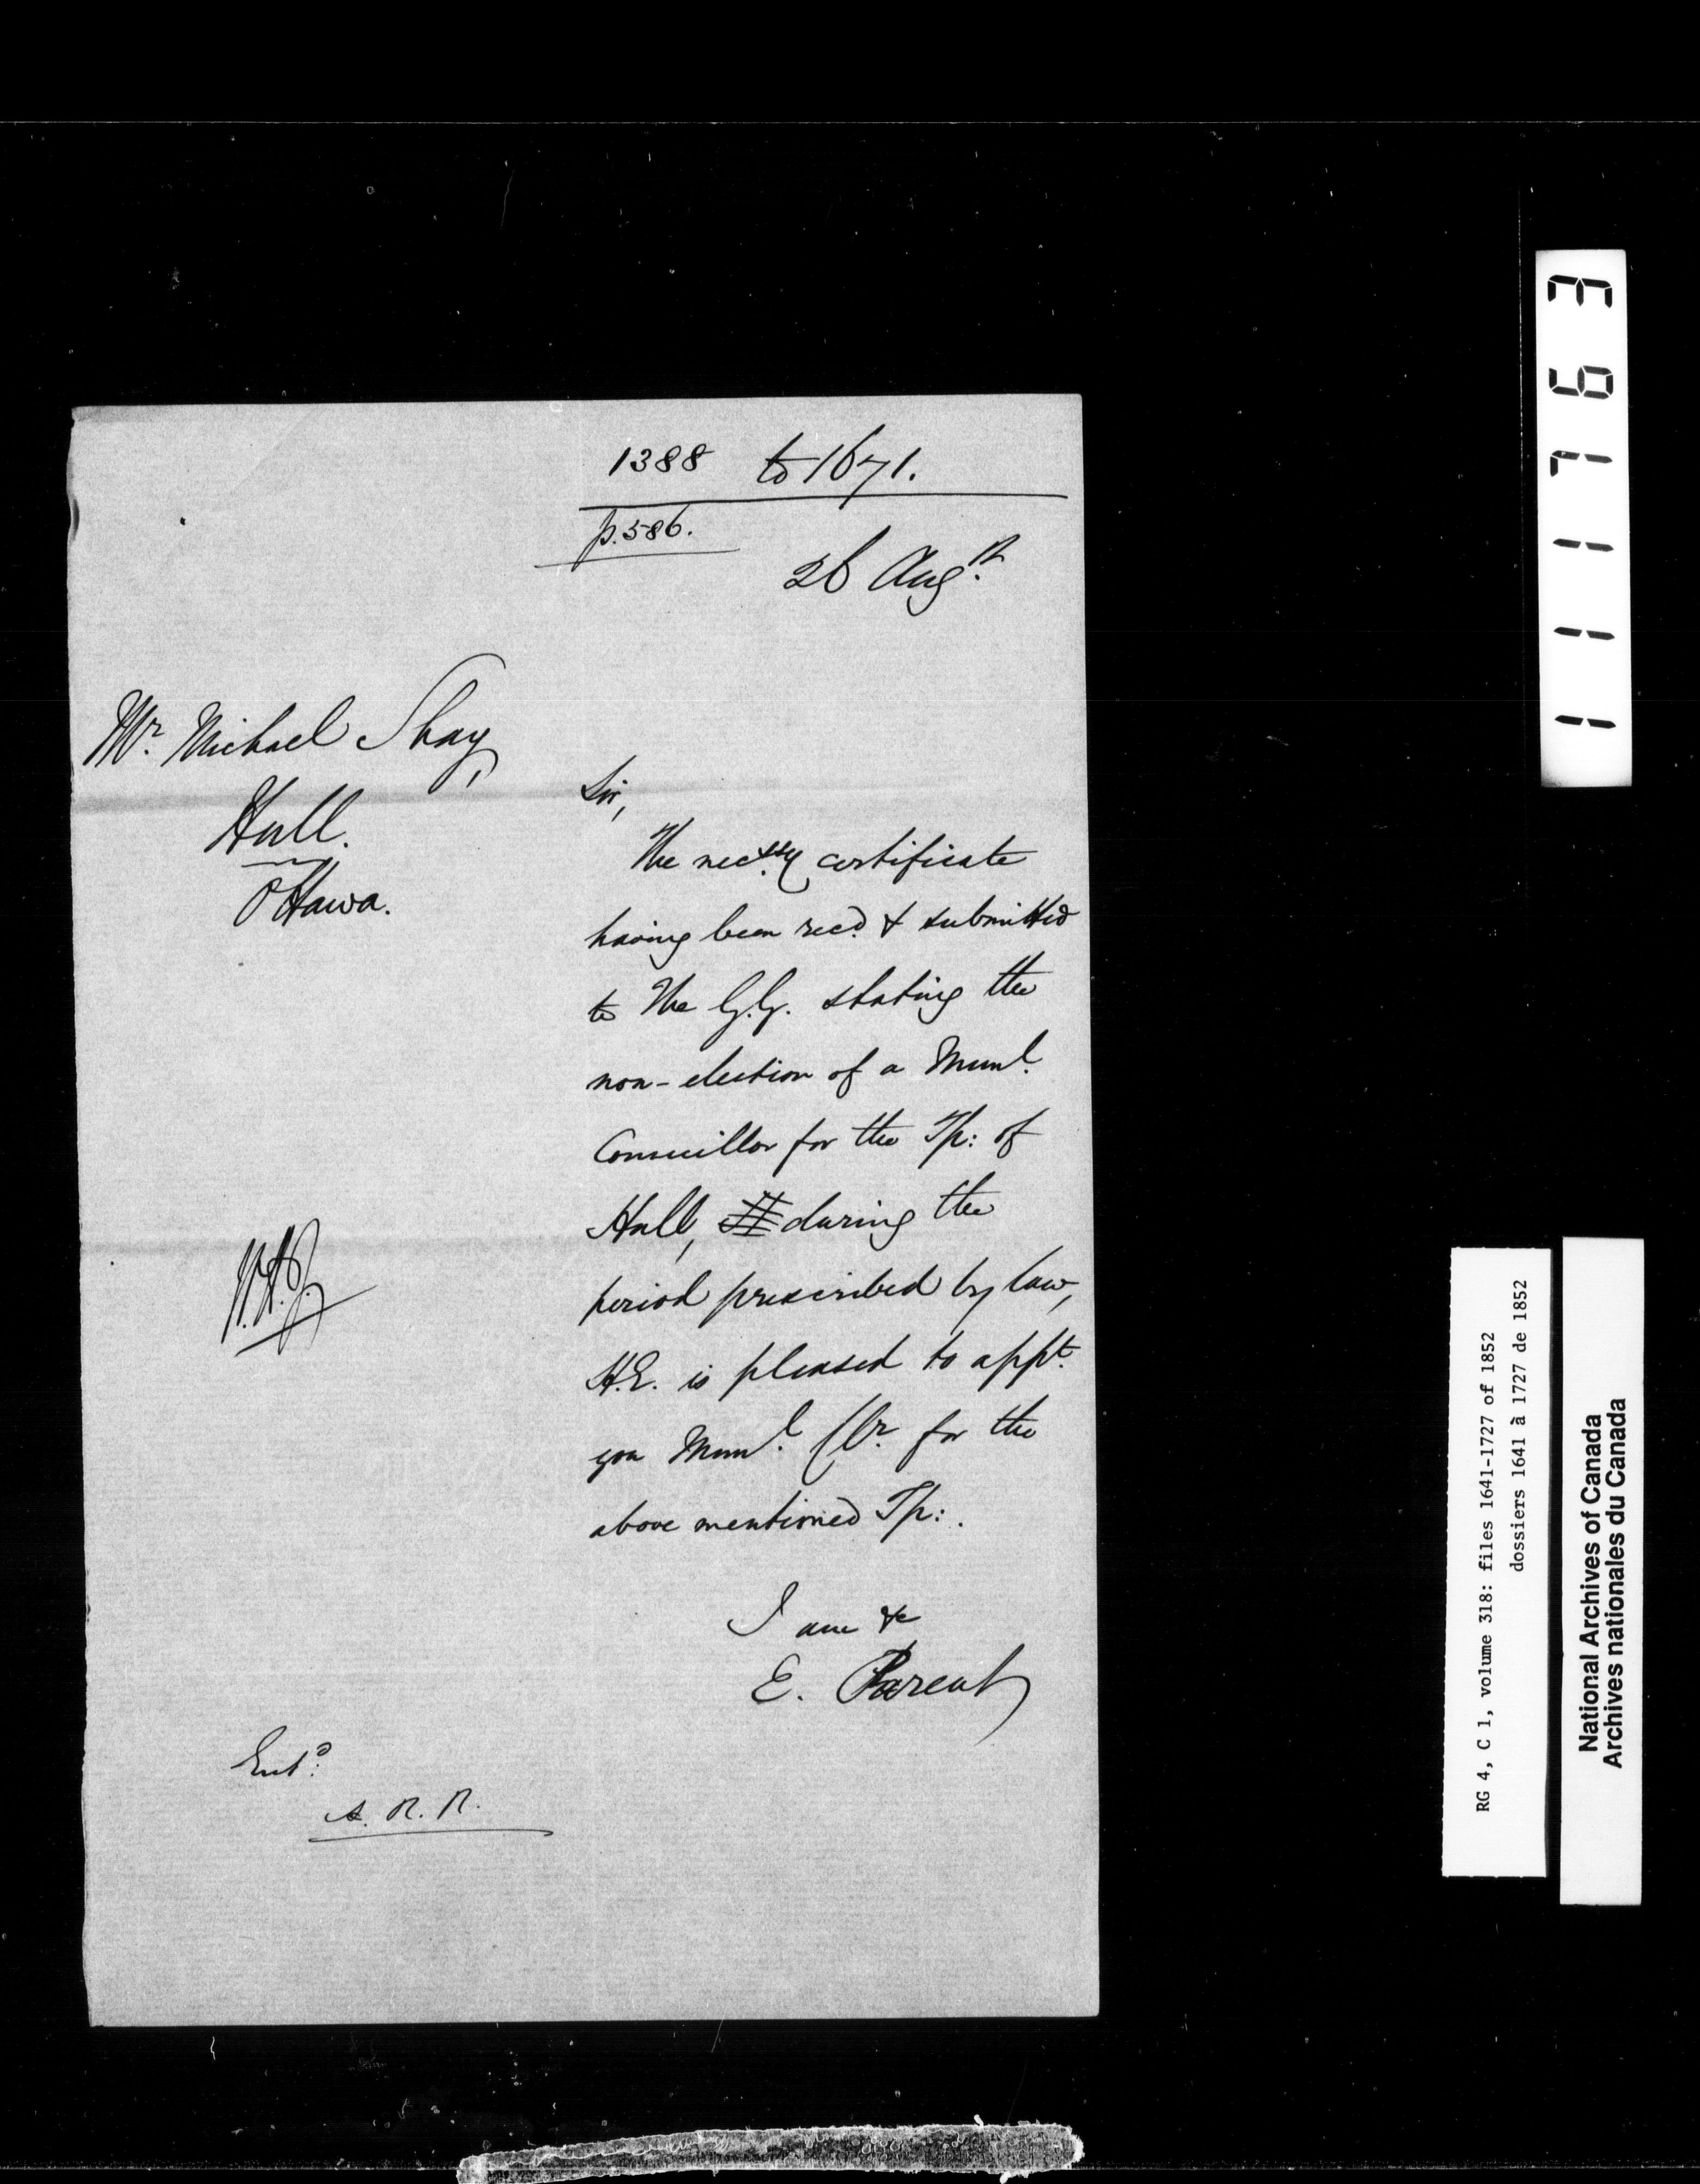 1388 to 1671.
p. 586.
26 Aug.st
Mr. Michael Shay,
Hull.
Ottawa.
Sir,
The necssy. certificate
having been recd. & submitted
to the G.G. stating the
non-election of a Munl.
Councillor for the Tp: of
Hull, during the
period prescribed by law,
H.E. is pleased to appt.
you Munl. Clr. for the
above mentioned Tp: .
I am &c
E. Parent
Entd.
A. R. R.
111763
RG 4, C 1, volume 318: files 1641-1727 of 1852
dossiers 1641 à 1727 de 1852
National Archives of Canada
Archives nationales du Canada